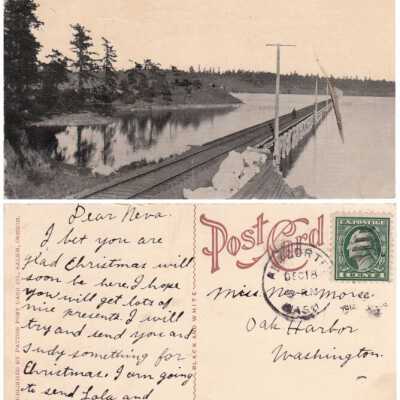 Dear Neva.
I bet you are
glad Christmas will
soon be here. I hope
you will get lots of
nice presents. I will
try and send you and
Judy something for
Christmas. I am going
to send Lola and
BLACK AND WHITE
Post Card
DEC 18
WASH
1912
U.S. POSTAGE
1 CENT 1
Miss Neva Morse
Oak Harbor
Washington.